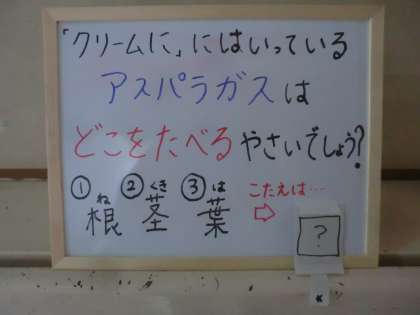 「クリームに」にはいっている
アスパラガスは
どこをたべるやさいでしょう?
① ② ③ こたえは…
ね くき は
根 茎 葉 ⇨ ?